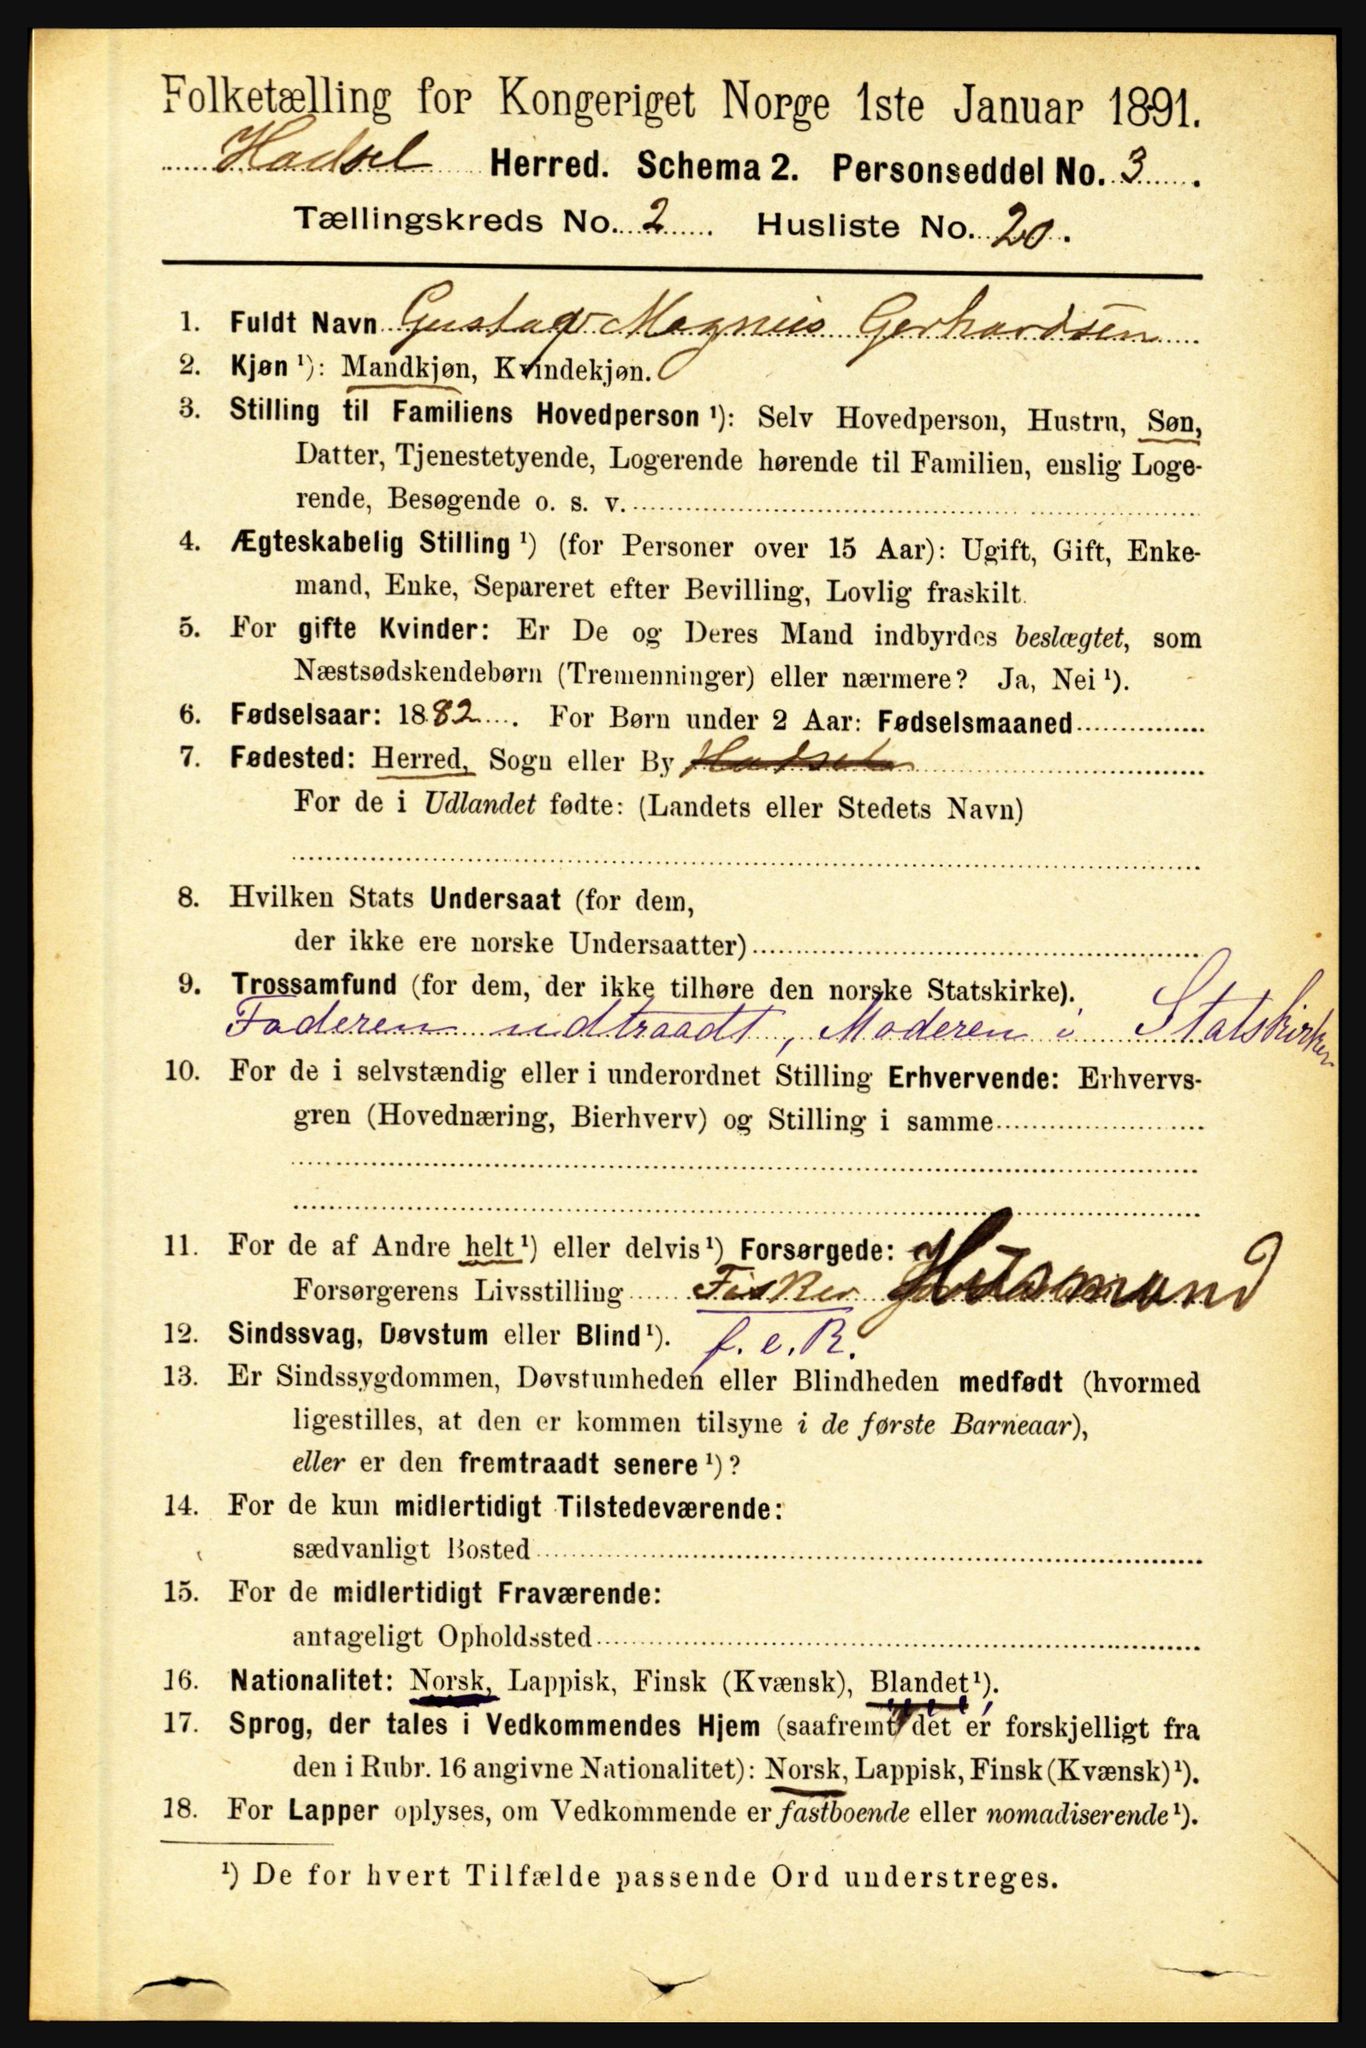 Folketælling for Kongeriget Norge 1ste Januar 1891.
Hadsel Herred. Schema 2. Personseddel No. 3.
Tællingskreds No. 2 Husliste No. 20.
1. Fuldt Navn Gustav Magnus Gerhardsen
2. Kjøn ¹): Mandkjøn, Kvindekjøn.
3. Stilling til Familiens Hovedperson ¹): Selv Hovedperson, Hustru, Søn,
Datter, Tjenestetyende, Logerende hørende til Familien, enslig Loge-
rende, Besøgende o. s. v.
4. Ægteskabelig Stilling ¹) (for Personer over 15 Aar): Ugift, Gift, Enke-
mand, Enke, Separeret efter Bevilling, Lovlig fraskilt.
5. For gifte Kvinder: Er De og Deres Mand indbyrdes beslægtet, som
Næstsødskendebørn (Tremenninger) eller nærmere? Ja, Nei ¹).
6. Fødselsaar: 1882. For Børn under 2 Aar: Fødselsmaaned
7. Fødested: Herred, Sogn eller By Hadsel
For de i Udlandet fødte: (Landets eller Stedets Navn)
8. Hvilken Stats Undersaat (for dem,
der ikke ere norske Undersaatter)
9. Trossamfund (for dem, der ikke tilhøre den norske Statskirke).
Faderen udtraadt, Moderen i Statskirken
10. For de i selvstændig eller i underordnet Stilling Erhvervende: Erhvervs-
gren (Hovednæring, Bierhverv) og Stilling i samme
11. For de af Andre helt ¹) eller delvis ¹) Forsørgede:
Forsørgerens Livsstilling Fisker Husmand
12. Sindssvag, Døvstum eller Blind ¹). f. e. R.
13. Er Sindssygdommen, Døvstumheden eller Blindheden medfødt (hvormed
ligestilles, at den er kommen tilsyne i de første Barneaar),
eller er den fremtraadt senere ¹)?
14. For de kun midlertidigt Tilstedeværende:
sædvanligt Bosted
15. For de midlertidigt Fraværende:
antageligt Opholdssted
16. Nationalitet: Norsk, Lappisk, Finsk (Kvænsk), Blandet ¹).
17. Sprog, der tales i Vedkommendes Hjem (saafremt det er forskjelligt fra
den i Rubr. 16 angivne Nationalitet): Norsk, Lappisk, Finsk (Kvænsk) ¹).
18. For Lapper oplyses, om Vedkommende er fastboende eller nomadiserende ¹).
¹) De for hvert Tilfælde passende Ord understreges.